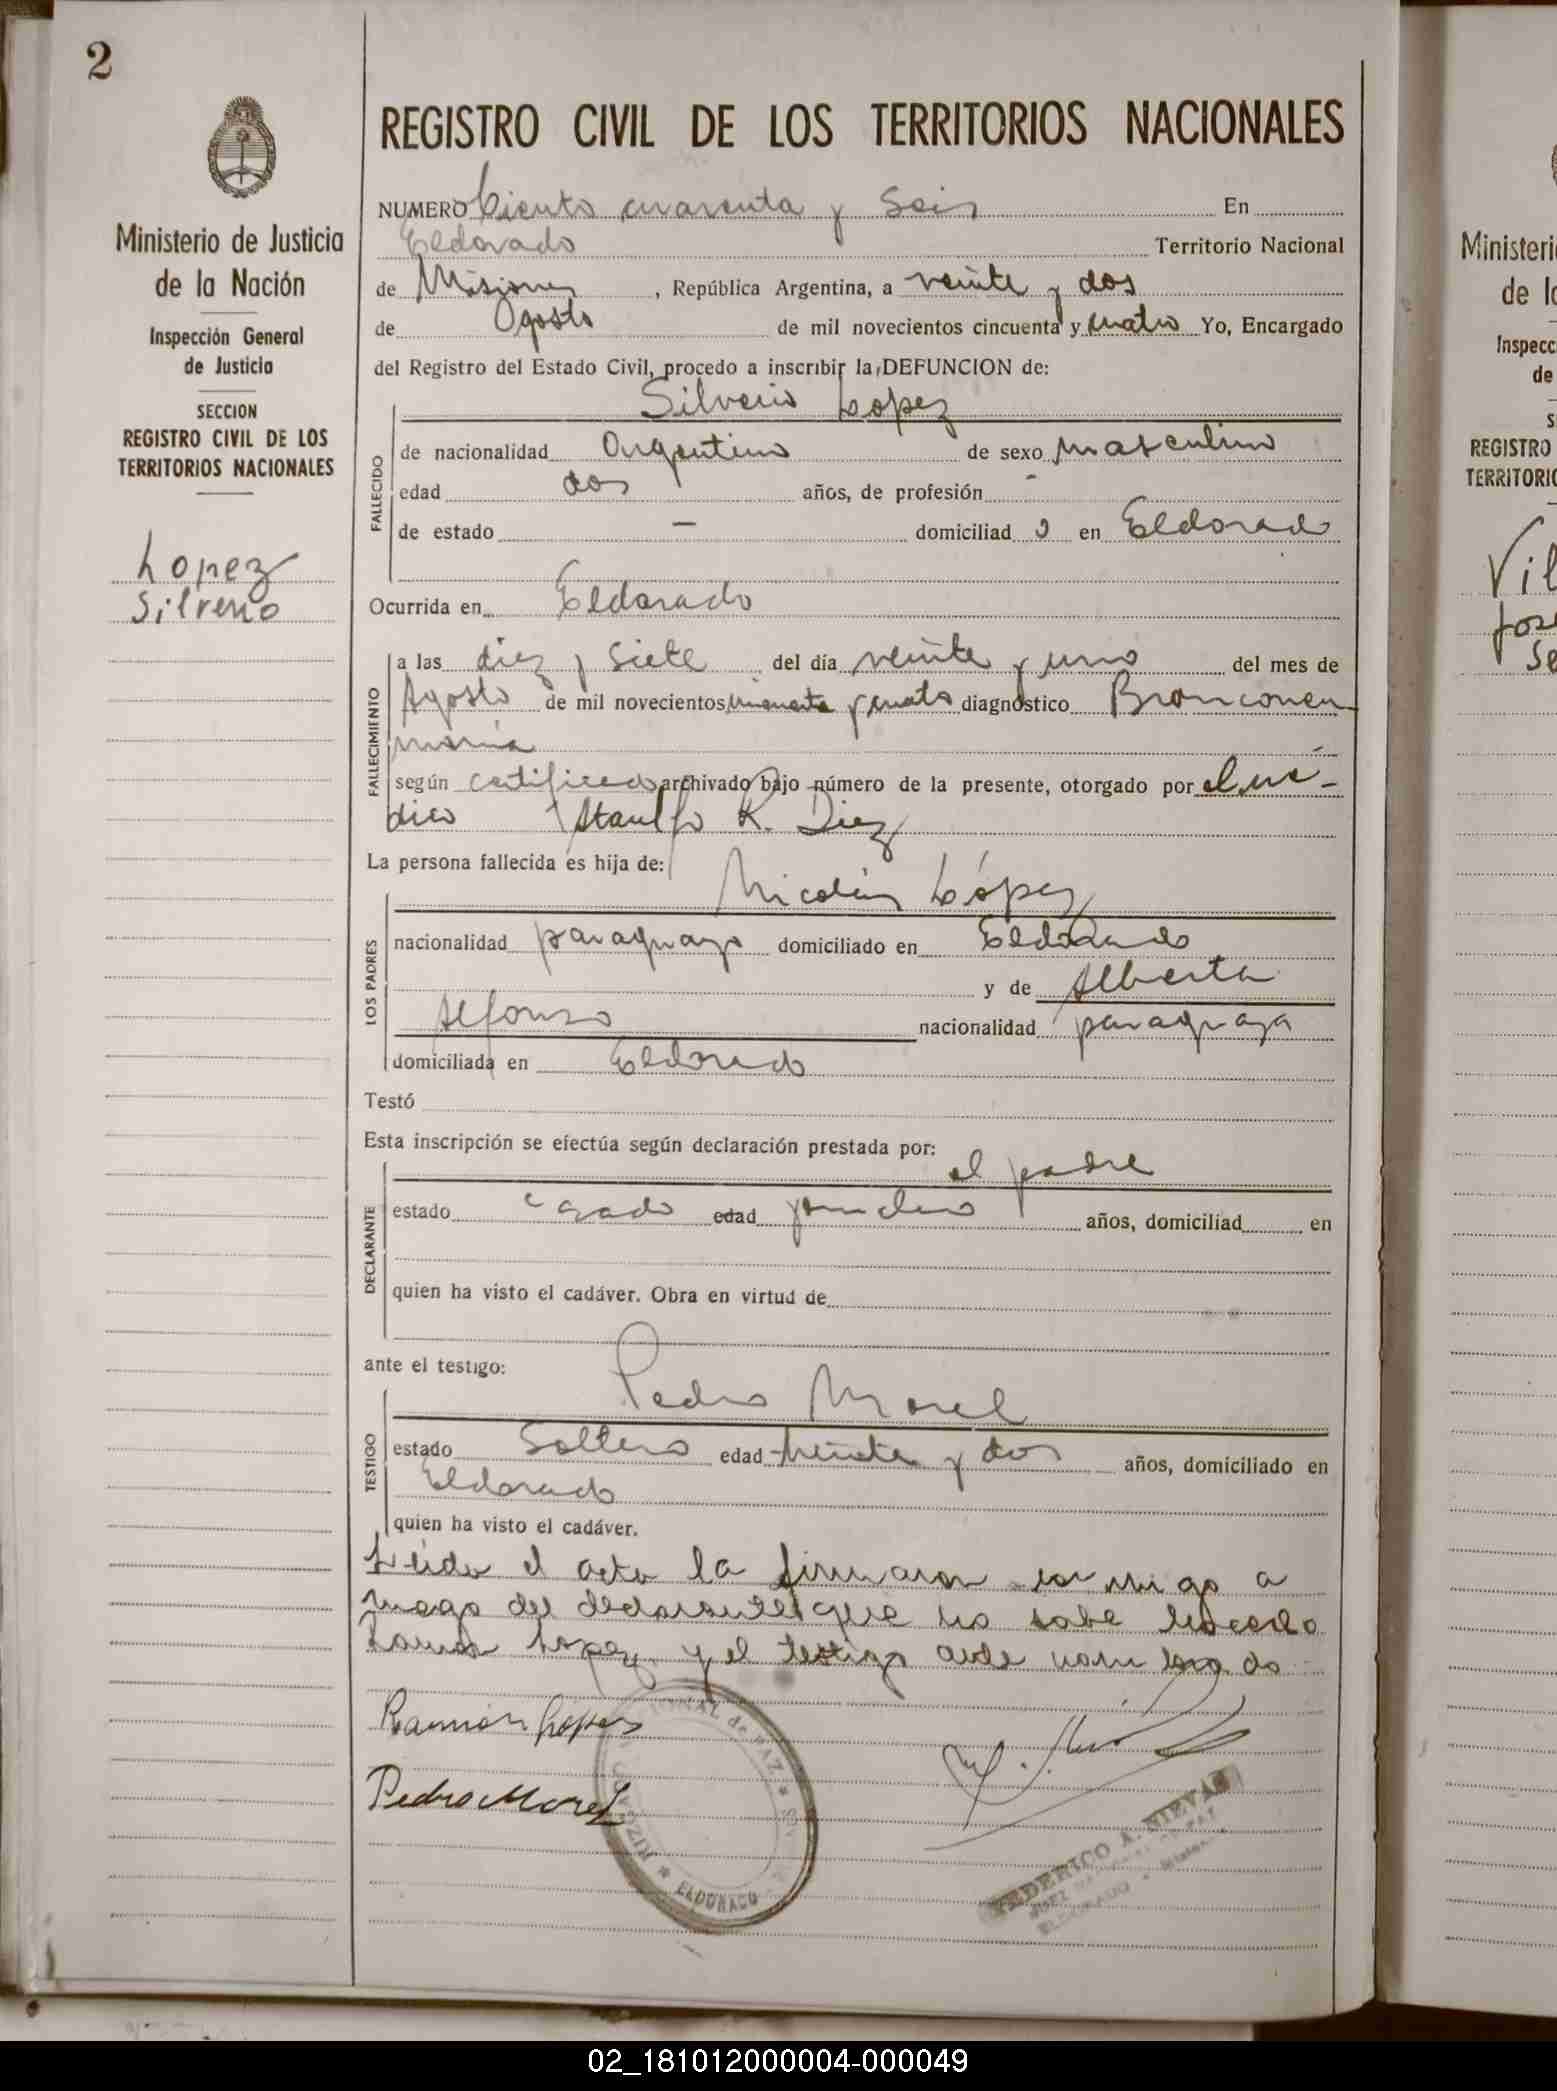 2
REGISTRO CIVIL DE LOS TERRITORIOS NACIONALES
Ministerio de Justicia
de la Nación
Inspección General
de Justicia
SECCION
REGISTRO CIVIL DE LOS
TERRITORIOS NACIONALES
Lopez
Silverio
NUMERO Ciento cuarenta y Seis En
Eldorado Territorio Nacional
de Misiones, República Argentina, a veinte y dos
de Agosto de mil novecientos cincuenta y cuatro Yo, Encargado
del Registro del Estado Civil, procedo a inscribir la DEFUNCION de:
Silverio Lopez
FALLECIDO
de nacionalidad Argentino de sexo masculino
edad dos años, de profesión -
de estado - domiciliad o en Eldorado
Ocurrida en Eldorado
FALLECIMIENTO
a las diez y siete del día veinte y uno del mes de
Agosto de mil novecientos cincuenta y cuatro diagnóstico Bronconeu
monia
según certificado archivado bajo número de la presente, otorgado por el mé-
dico K. Diez
La persona fallecida es hija de:
Nicolás López
LOS PADRES
nacionalidad paraguayo domiciliado en Eldorado
y de Alberta
Alfonso nacionalidad paraguaya
domiciliada en Eldorado
Testó
Esta inscripción se efectúa según declaración prestada por:
el padre
DECLARANTE
estado casado edad años, domiciliad en
quien ha visto el cadáver. Obra en virtud de
ante el testigo:
Pedro Morel
TESTIGO
estado Soltero edad veinte y dos años, domiciliado en
Eldorado
quien ha visto el cadáver.
Leida el acta la firmaron conmigo a
ruego del declarante que no sabe hacerlo
Ramon Lopez y el testigo
Ramón López
Pedro Morel
NACIONAL de PAZ
ELDORADO
FEDERICO A. NIEVAS
JUEZ NACIONAL DE PAZ
ELDORADO - Misiones
Ministeri
de l
Inspecc
de
S
REGISTRO
TERRITORIO
Vil
Jos
Se
02_181012000004-000049